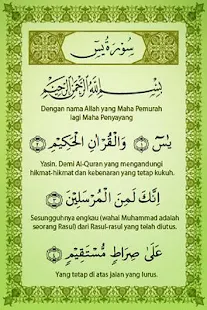 سُورَةُ يسٓ
بِسْمِ اللَّهِ الرَّحْمَٰنِ الرَّحِيمِ
Dengan nama Allah yang Maha Pemurah
lagi Maha Penyayang
يسٓ ۝١ وَالْقُرْآنِ الْحَكِيمِ ۝٢
Yasin. Demi Al-Quran yang mengandungi
hikmat-hikmat dan kebenaran yang tetap kukuh.
إِنَّكَ لَمِنَ الْمُرْسَلِينَ ۝٣
Sesungguhnya engkau (wahai Muhammad adalah
seorang Rasul) dari Rasul-rasul yang telah diutus.
عَلَىٰ صِرَاطٍ مُّسْتَقِيمٍ ۝٤
Yang tetap di atas jalan yang lurus.